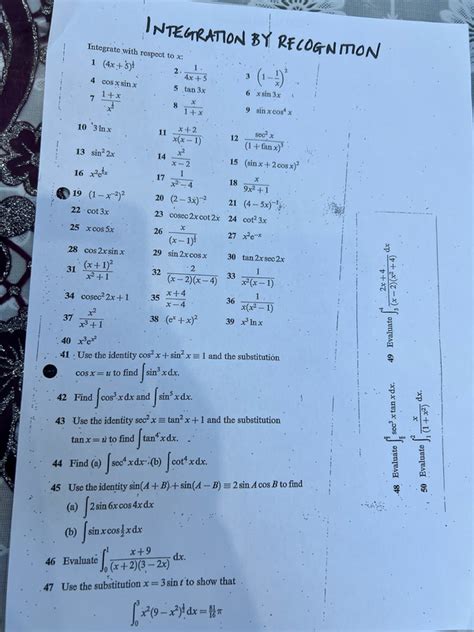 INTEGRATION BY RECOGNITION
Integrate with respect to x:
1 (4x + 5)^½ 2 1/(4x + 5) 3 (1 − 1/x)²
4 cos x sin x 5 tan 3x 6 x sin 3x
7 (1 + x)/x^½ 8 x/(1 + x) 9 sin x cos⁴ x
10 3 ln x 11 (x + 2)/(x(x − 1)) 12 sec² x/(1 + tan x)³
13 sin² 2x 14 x²/(x − 2) 15 (sin x + 2 cos x)²
16 17 1/(x² − 4) 18 x/(9x² + 1)
19 (1 − x⁻²)² 20 (2 − 3x)⁻² 21 (4 − 5x)⁻¹
22 cot 3x 23 cosec 2x cot 2x 24 cot² 3x
25 x cos 5x 26 x/(x − 1)^½ 27 x²e⁻ˣ
28 cos 2x sin x 29 sin 2x cos x 30 tan 2x sec 2x
31 (x + 1)²/(x² + 1) 32 2/((x − 2)(x − 4)) 33 1/(x²(x − 1))
34 cosec² 2x + 1 35 (x + 4)/(x − 4) 36 1/(x(x² − 1))
37 x²/(x³ + 1) 38 (eˣ + x)² 39 x³ ln x
40
41 Use the identity cos² x + sin² x ≡ 1 and the substitution
cos x = u to find ∫sin³ x dx.
42 Find ∫cos³ x dx and ∫sin⁵ x dx.
43 Use the identity sec² x ≡ tan² x + 1 and the substitution
tan x = u to find ∫tan⁴ x dx.
44 Find (a) ∫sec⁴ x dx (b) ∫cot⁴ x dx.
45 Use the identity sin(A + B) + sin(A − B) ≡ 2 sin A cos B to find
(a) ∫2 sin 6x cos 4x dx
(b) ∫sin x cos ½x dx
46 Evaluate ∫₀¹ (x + 9)/((x + 2)(3 − 2x)) dx.
47 Use the substitution x = 3 sin t to show that
∫₀³ x²(9 − x²)^½ dx = 81/16 π
48 Evaluate sec³ x tan x dx.
49 Evaluate ∫₃⁴ (2x + 4)/((x − 2)(x² + 4)) dx
50 Evaluate ∫₁² x/(1 + x²) dx.